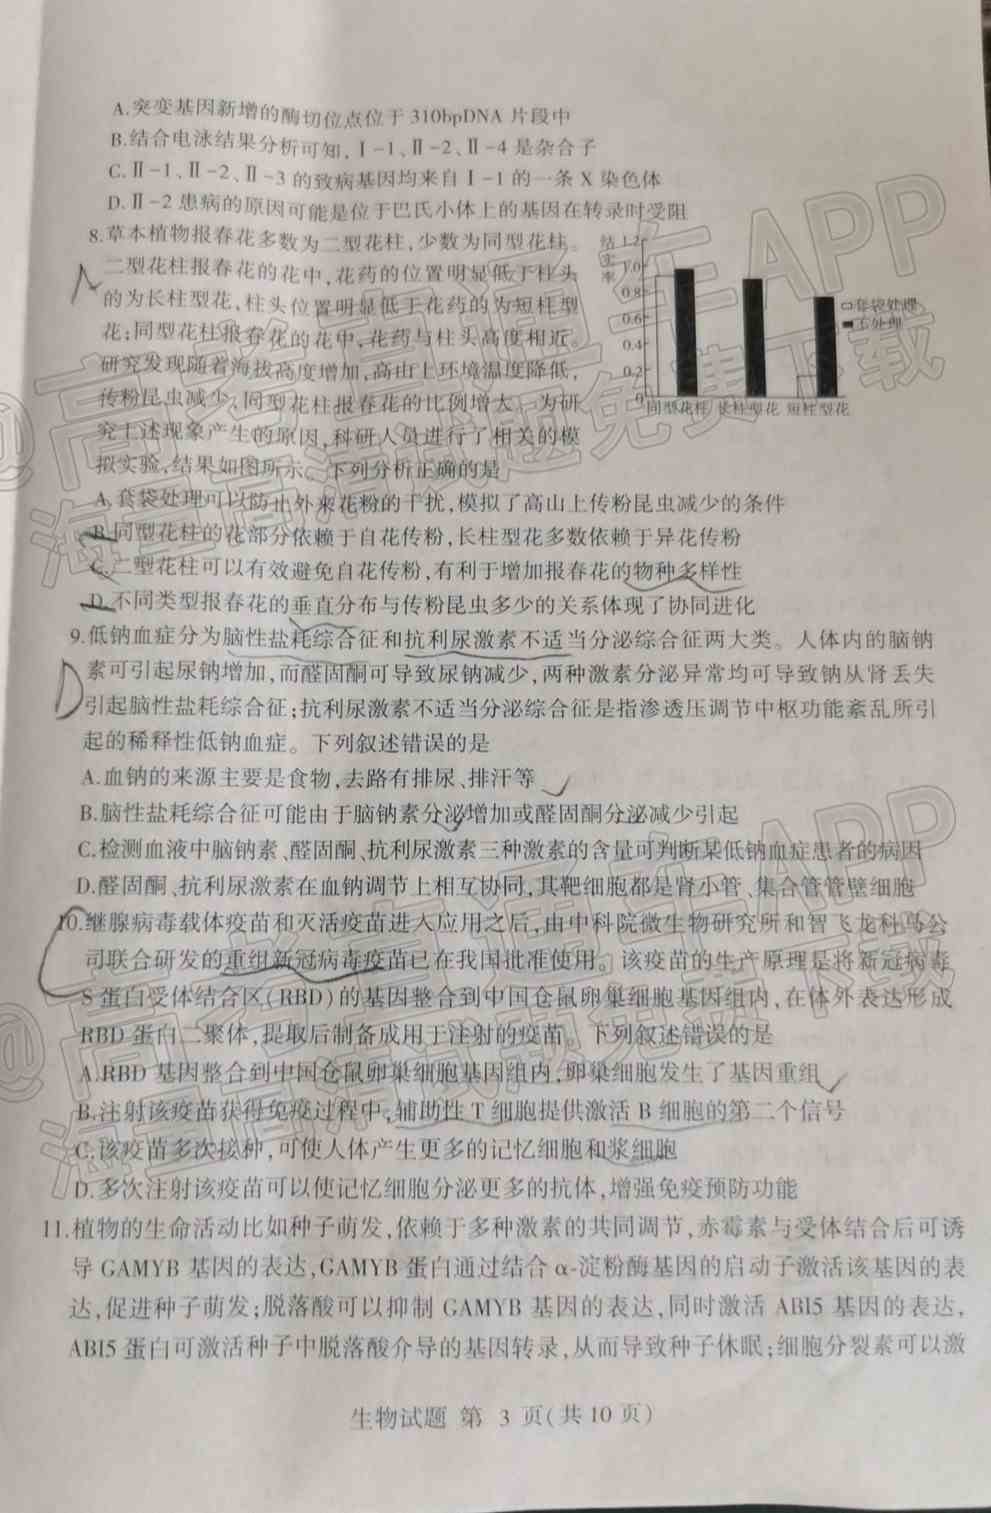 A.突变基因新增的酶切位点位于310bpDNA片段中
B.结合电泳结果分析可知,Ⅰ-1、Ⅱ-2、Ⅱ-4是杂合子
C.Ⅱ-1、Ⅱ-2、Ⅱ-3的致病基因均来自Ⅰ-1的一条X染色体
D.Ⅱ-2患病的原因可能是位于巴氏小体上的基因在转录时受阻
8.草本植物报春花多数为二型花柱,少数为同型花柱。
二型花柱报春花的花中,花药的位置明显低于柱头
的为长柱型花,柱头位置明显低于花药的为短柱型
花;同型花柱报春花的花中,花药与柱头高度相近。
研究发现随着海拔高度增加,高山上环境温度降低,
传粉昆虫减少,同型花柱报春花的比例增大。为研
究上述现象产生的原因,科研人员进行了相关的模
拟实验,结果如图所示。下列分析正确的是
结实率
1.2
1.0
0.8
0.6
0.4
0.2
0
同型花柱 长柱型花 短柱型花
套袋处理
不处理
A.套袋处理可以防止外来花粉的干扰,模拟了高山上传粉昆虫减少的条件
B.同型花柱的花部分依赖于自花传粉,长柱型花多数依赖于异花传粉
C.二型花柱可以有效避免自花传粉,有利于增加报春花的物种多样性
D.不同类型报春花的垂直分布与传粉昆虫多少的关系体现了协同进化
9.低钠血症分为脑性盐耗综合征和抗利尿激素不适当分泌综合征两大类。人体内的脑钠
素可引起尿钠增加,而醛固酮可导致尿钠减少,两种激素分泌异常均可导致钠从肾丢失
引起脑性盐耗综合征;抗利尿激素不适当分泌综合征是指渗透压调节中枢功能紊乱所引
起的稀释性低钠血症。下列叙述错误的是
D
A.血钠的来源主要是食物,去路有排尿、排汗等
B.脑性盐耗综合征可能由于脑钠素分泌增加或醛固酮分泌减少引起
C.检测血液中脑钠素、醛固酮、抗利尿激素三种激素的含量可判断某低钠血症患者的病因
D.醛固酮、抗利尿激素在血钠调节上相互协同,其靶细胞都是肾小管、集合管管壁细胞
10.继腺病毒载体疫苗和灭活疫苗进入应用之后,由中科院微生物研究所和智飞龙科马公
司联合研发的重组新冠病毒疫苗已在我国批准使用。该疫苗的生产原理是将新冠病毒
S蛋白受体结合区(RBD)的基因整合到中国仓鼠卵巢细胞基因组内,在体外表达形成
RBD蛋白二聚体,提取后制备成用于注射的疫苗。下列叙述错误的是
A.RBD基因整合到中国仓鼠卵巢细胞基因组内,卵巢细胞发生了基因重组
B.注射该疫苗获得免疫过程中,辅助性T细胞提供激活B细胞的第二个信号
C.该疫苗多次接种,可使人体产生更多的记忆细胞和浆细胞
D.多次注射该疫苗可以使记忆细胞分泌更多的抗体,增强免疫预防功能
11.植物的生命活动比如种子萌发,依赖于多种激素的共同调节,赤霉素与受体结合后可诱
导GAMYB基因的表达,GAMYB蛋白通过结合α-淀粉酶基因的启动子激活该基因的表
达,促进种子萌发;脱落酸可以抑制GAMYB基因的表达,同时激活ABI5基因的表达,
ABI5蛋白可激活种子中脱落酸介导的基因转录,从而导致种子休眠;细胞分裂素可以激
生物试题 第 3 页(共10页)
@高考直通车APP
海量真题免费下载
@高考直通车APP
海量真题免费下载